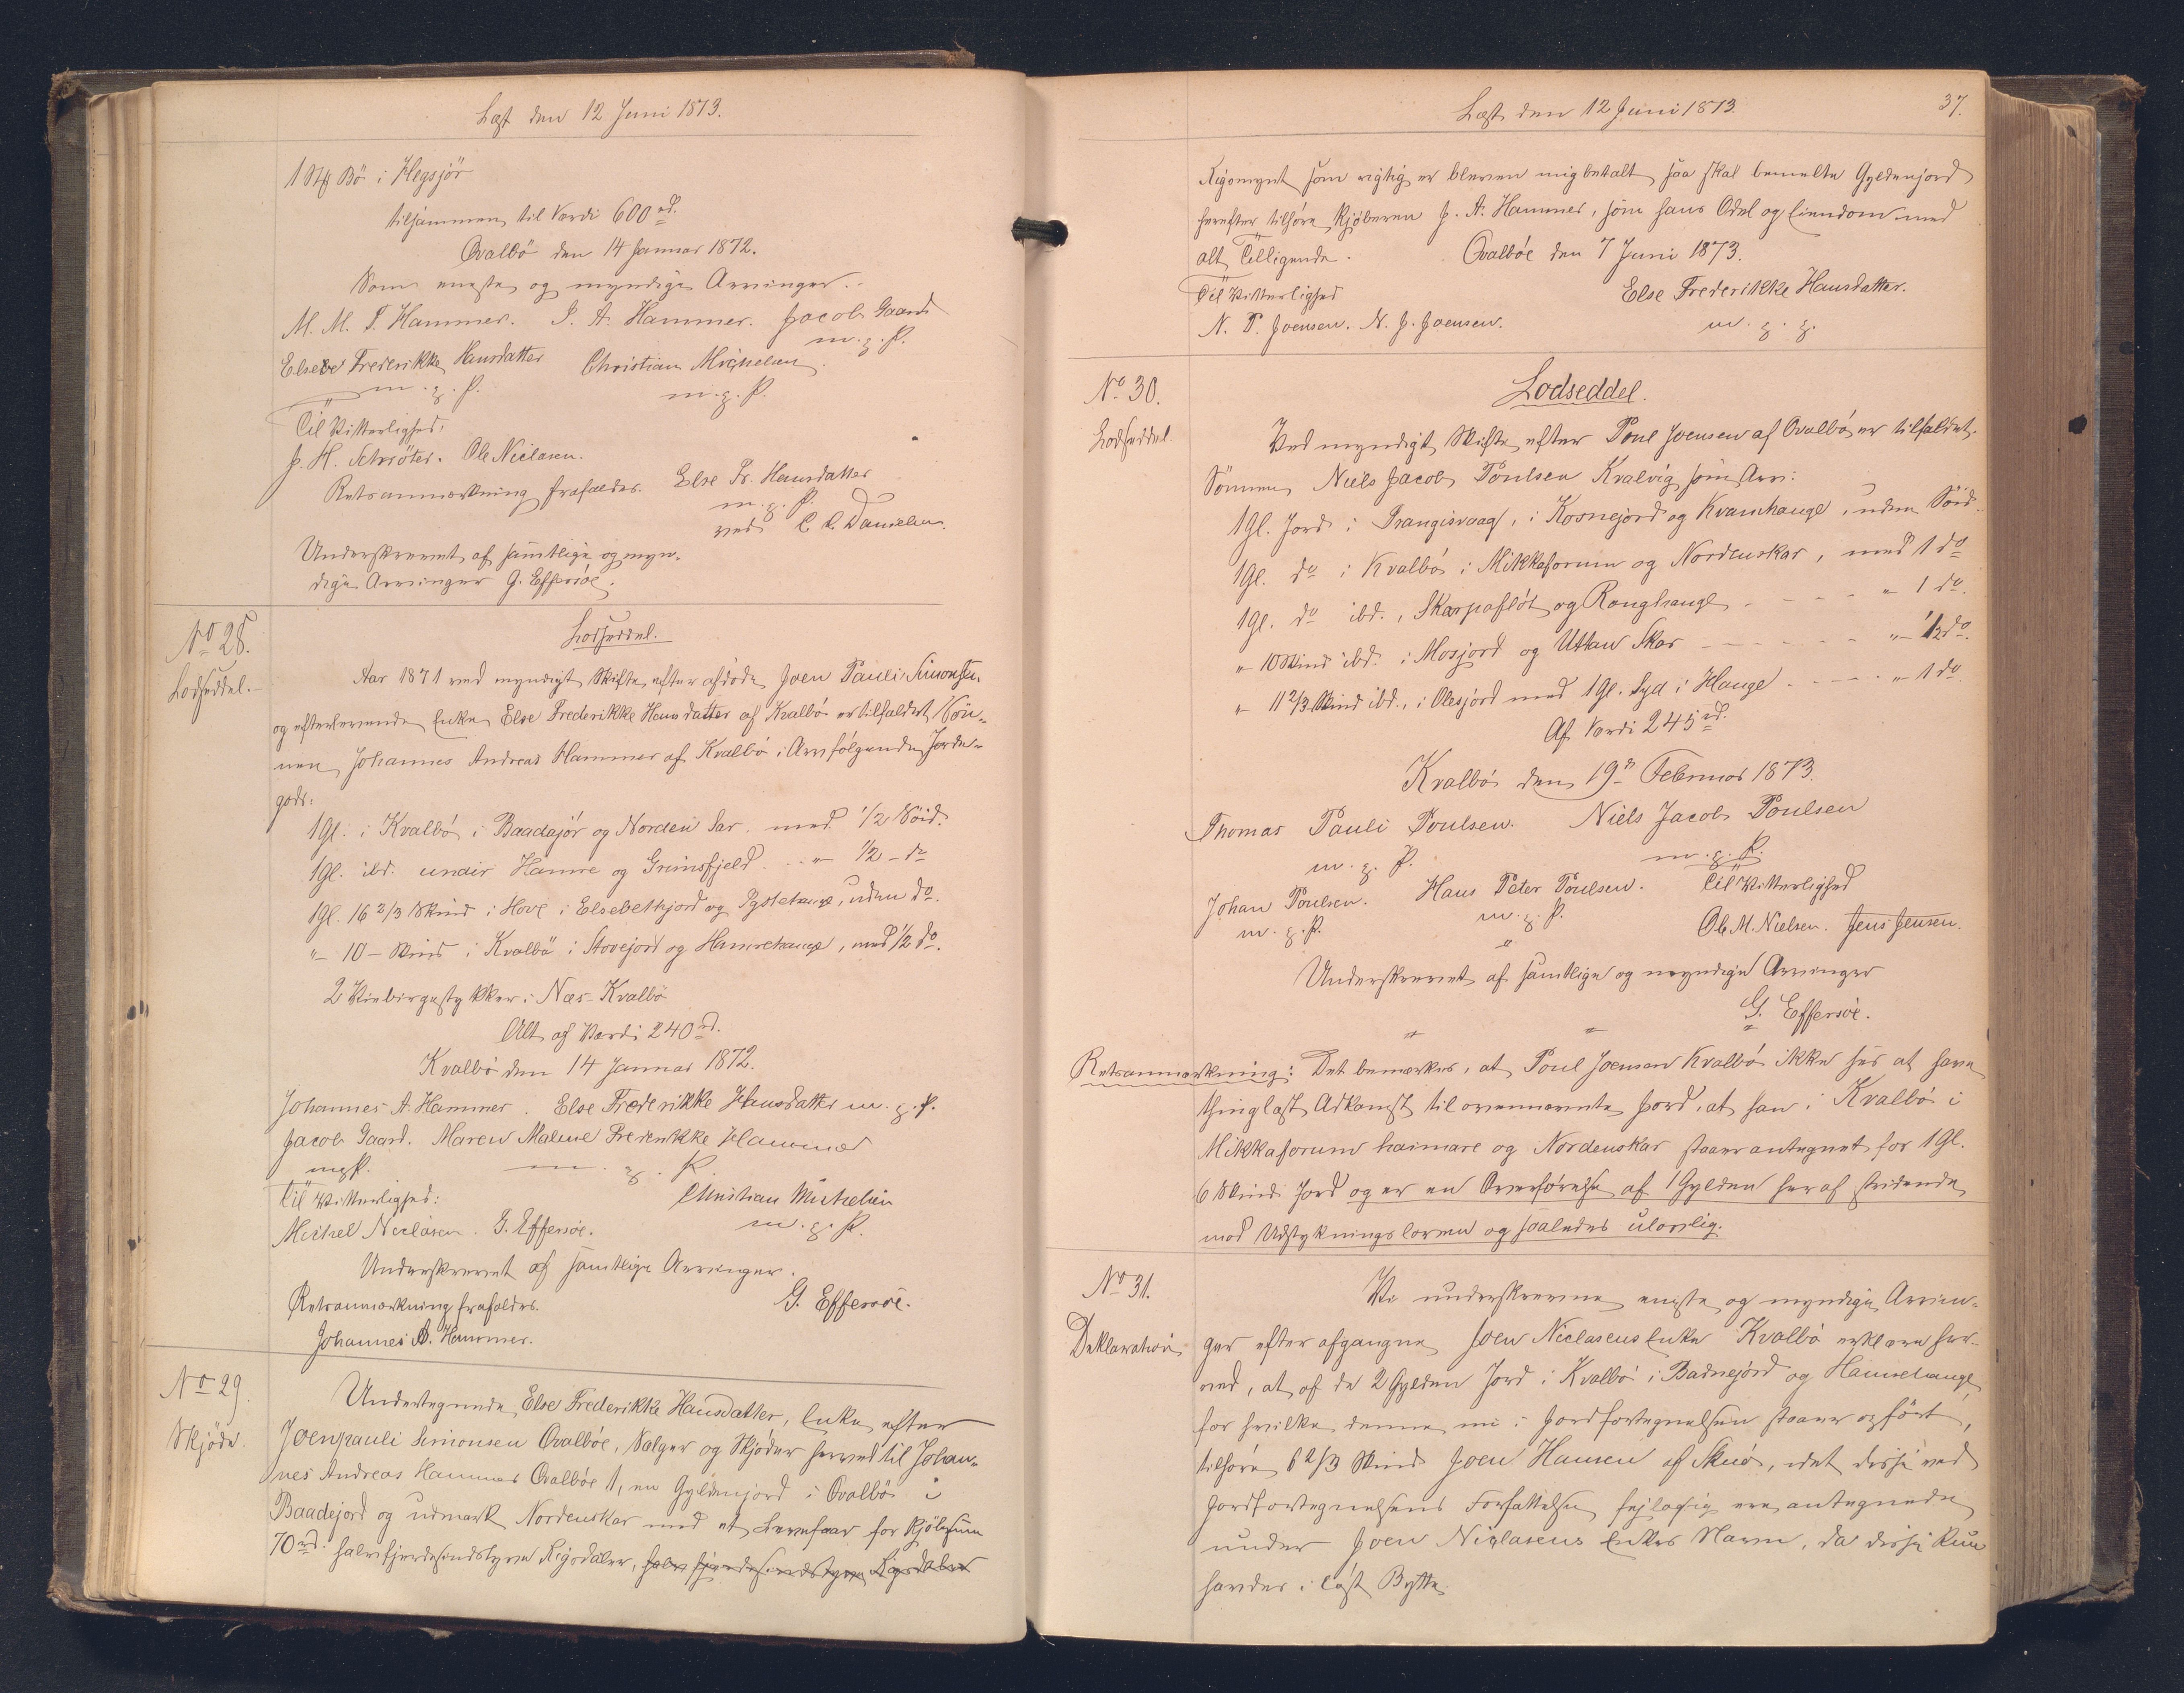 Læst den 12 Juni 1873.
1 Stk Bö i Hegsjör
tilsammen til Værdi 600 rd.
Qvalbö den 14 Januar 1872.
Som eneste og myndige Arvinger.
M. M. F. Hammer. J. A. Hammer. Jacob Gaard
m. g. P.
Else Frederikke Hansdatter Christian Michelsen
m. g. P. m. g. P.
Til Vitterlighed,
J. H. Schröter. Ole Niclasen.
Retsanmærkning frafaldes. Else Fr. Hansdatter
m. g. P.
ved C. C. Danielsen.
Underskrevet af samtlige og myn-
dige Arvinger G. Effersöe.
No 28.
Lodseddel.
Lodseddel.
Aar 1871 ved myndigt Skifte efter afdöde Joen Pauli Simonsen,
og efterlevende Enke Else Frederikke Hansdatter af Kvalbö er tilfaldet Sön-
nen Johannes Andreas Hammer af Kvalbö i Arv fölgende Jorde-
gods:
1 Gl. i Kvalbö i Baadajör og Norden Sar med 1/2 Söid.
1 Gl. ibd. undir Hamre og Grimsfjeld - - " 1/2 - do
1 Gl. 16 2/3 Skind i Hove i Elsebethjord og Pystehauge, uden do.
" - 10 - Skind i Kvalbö i Stovejord og Hamrehauge, med 1/2 do.
2 Kirkebirgestykker i Næs-Kvalbö
Alt af Værdi 240 rd.
Kvalbö den 14 Januar 1872.
Johannes A. Hammer. Else Frederikke Hansdatter m. g. P.
Jacob Gaard. Maren Malene Frederikke Hammer
m g P. m. g. P.
Til Vitterlighed: Christian Michelsen
Michel Niclasen. G. Effersöe. m. g. P.
Underskrevet af samtlige Arvinger.
Retsanmærkning frafaldes. G. Effersöe.
Johannes A. Hammer.
No 29.
Skjöde.
Undertegnede, Else Frederikke Hansdatter, Enke efter
Joenpauli Simonsen Qvalböe, Sælger og Skjöder herved til Johan-
nes Andreas Hammer Qvalböe 1, en Gyldenjord i Qvalbö i
Baadejord og udmark Nordenskar med et Levefaar for Kjöbesum
70 rd. halvfjerdesindstyve Rigsdaler, halvfjerdesindstyve Rigsdaler
Læst den 12 Juni 1873. 37.
Rigsmynt som rigtig er bleven mig betalt, saa skal bemelte Gyldenjord
herefter tilhöre Kjöberen J. A. Hammer, som hans Odel og Eiendom med
alt Tilliggende. Qvalböe den 7 Juni 1873.
Til Vitterlighed Else Frederikke Hansdatter.
N. P. Joensen. N. J. Joensen. m. g. g.
No 30.
Lodseddel
Lodseddel.
Ved myndigt Skifte efter Poul Joensen af Qvalbö er tilfaldet
Sönnen Niels Jacob Poulsen Kvalvig som Arv:
1 Gl. Jord i Trangisvaag, i Kosnejord og Kvanhauge, uden Söid.
1 Gl. do i Kvalbö i Mikkaforum og Nordenskar, med 1 do
1 Gl. do ibd., Skarpaflöt og Ronghauge - - - - " 1 do.
" 10 Skind ibd. i Mosjord og Uttan Skar - - - - - - " 1/2 do.
" 11 2/3 Skind ibd., i Olesjord med 1 Gl. Syd i Hauge - - - - " 1 do
Af Værdi 245 rd.
Kvalbö den 19n Februar 1873.
Thomas Pauli Poulsen. Niels Jacob Poulsen
m. g. P. m. g. P.
Johan Poulsen. Hans Peter Poulsen. Til Vitterlighed
m. g. P. m. g. P. Ole M. Nielsen. Jens Jensen.
Underskrevet af samtlige og myndige Arvinger
G. Effersöe.
Retsanmærkning: Det bemærkes, at Poul Joensen Kvalbö ikke sees at have
thinglæst Adkomst til ovennævnte Jord, at han i Kvalbö i
Mikkaforum haimare og Nordenskar staaer antegnet for 1 Gl.
6 Skind Jord og er en Overförelse af 1 Gylden heraf stridende
mod Udstykningsloven og saaledes ulovlig.
No 31.
Deklaration
Vi underskrevne eneste og myndige Arvin-
ger efter afgangne Joen Niclasens Enke Kvalbö erklære her-
ved, at af de 2 Gylden Jord i Kvalbö i Badnejord og Hamrehauge,
for hvilke denne nu i Jordfortegnelsen staaer opfört,
tilhöre 6 2/3 Skind Joen Hansen af Skuö, idet disse ved
Jordfortegnelsens Forfattelse fejlagtig ere antegnede
under Joen Niclasens Enkes Navn, da disse kun
havdes i löst Bytte.